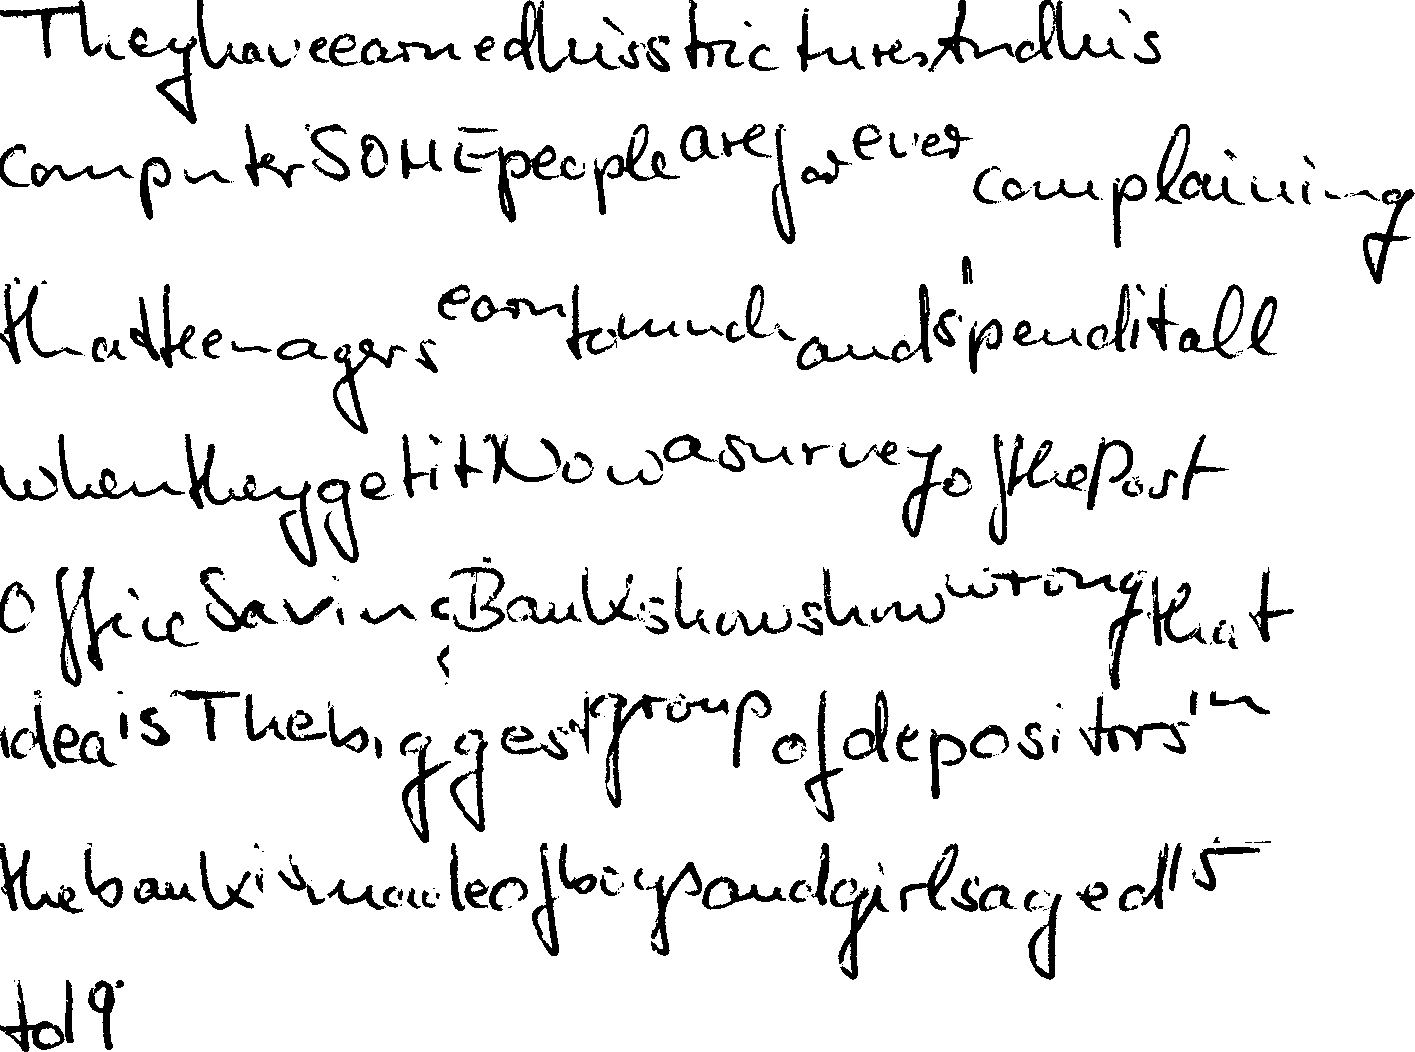 They have earned his strictures. And his
computer SOME people are for ever complaining
that teenagers earn to much and spend it all
when they get it. Now a survey of the Post
Office Saving Bank shows how wrong that
idea is. The biggest group of depositors in
the bank is made of boys and girls aged 15
to 19.